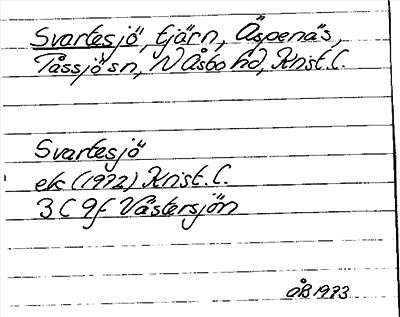 Svartesjö, tjärn, Äspenäs,
Tåssjö sn, N Åsbo hd, Krist. L.
Svartesjö
ek (1972) Krist. L.
3 C 9f Västersjön
ÅB 1973